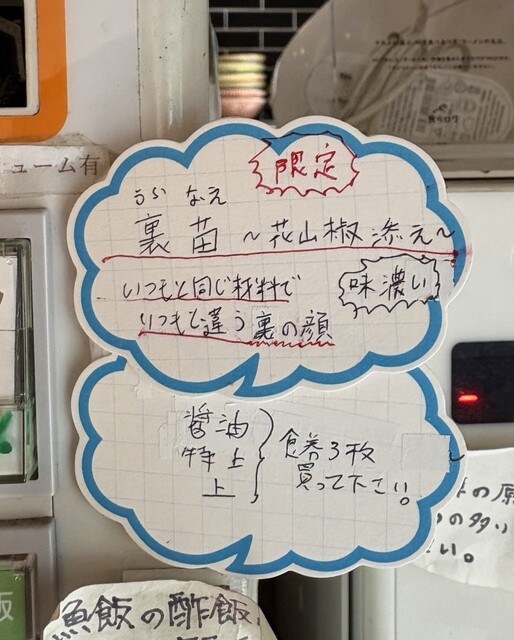 ューム有
限定
うら なえ
裏苗 ～花山椒添え～
いつもと同じ材料で
味濃い
いつもと違う裏の顔
醤油
特上
上
食券3枚
買って下さい。
の原
の多い
い。
飯
魚飯の酢飯